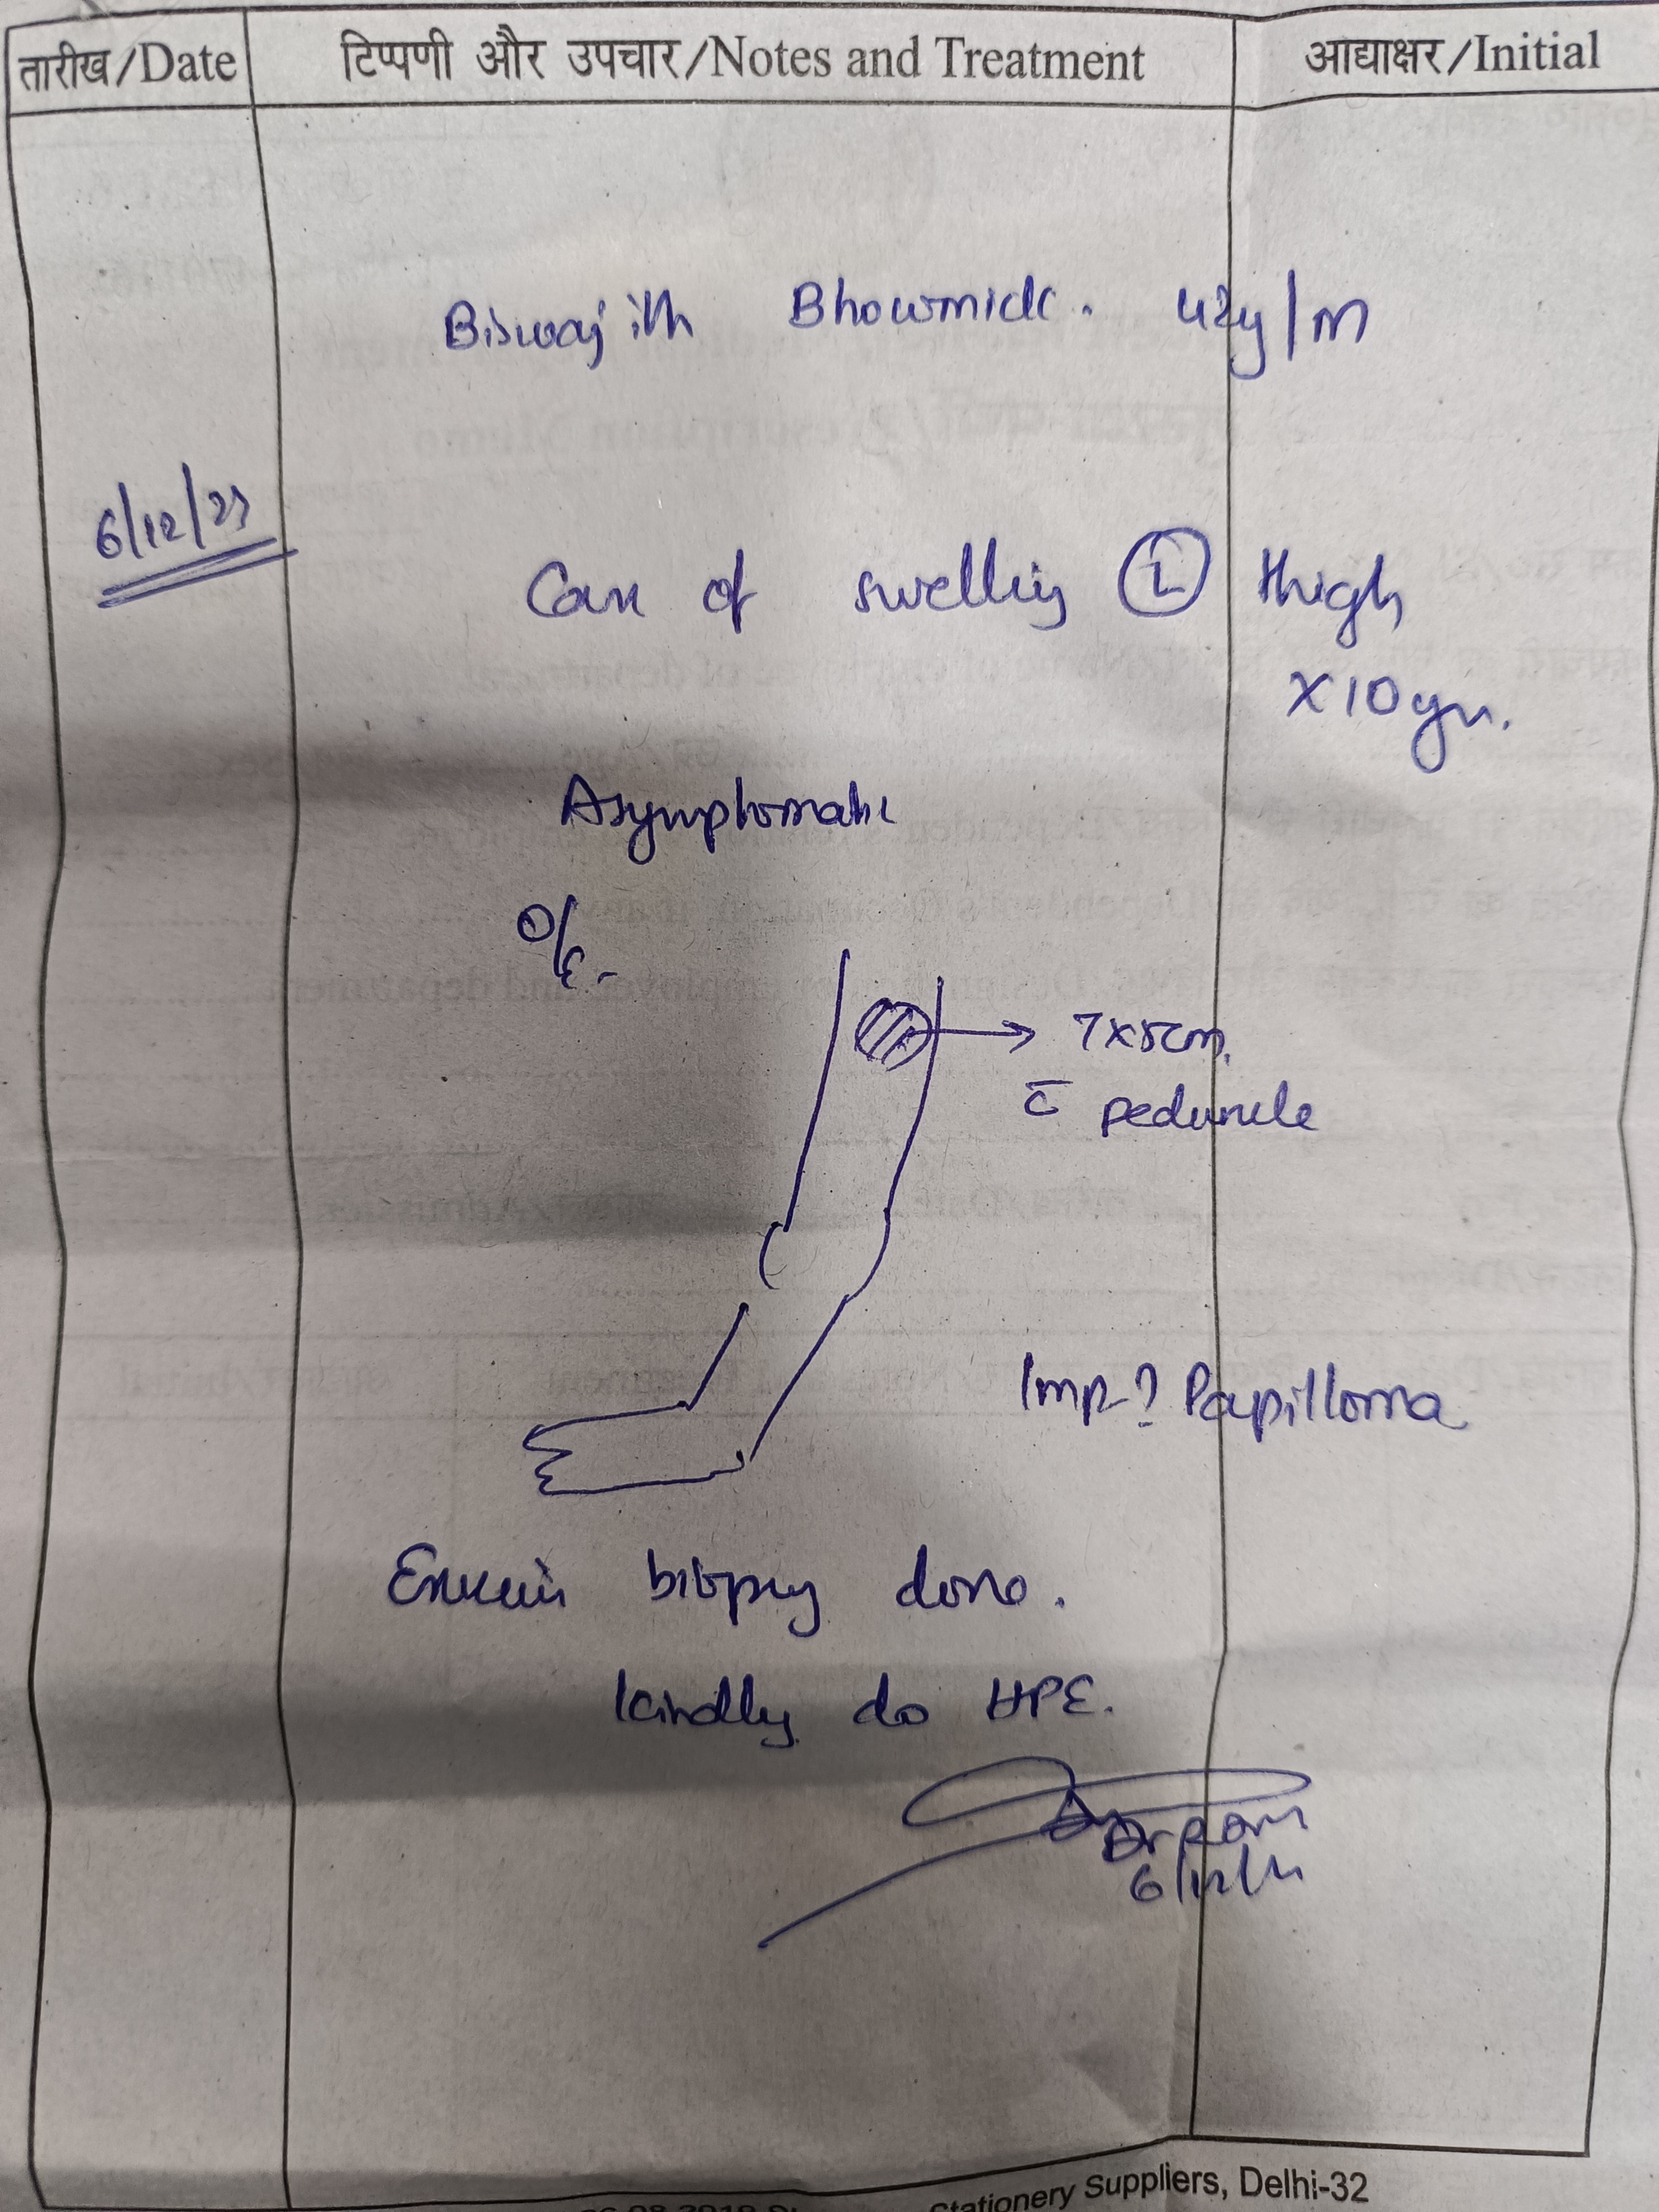 तारीख/Date टिप्पणी और उपचार/Notes and Treatment आद्याक्षर/Initial
Biswajith Bhowmick. 42y/M
6/12/23
Case of swelling Ⓛ thigh
X10yrs.
Asymptomatic
O/E-
7x5cm.
c̄ peduncle
Imp-? Papilloma
Excision biopsy done.
kindly do HPE.
Dr Ram
6/12/
Stationery Suppliers, Delhi-32